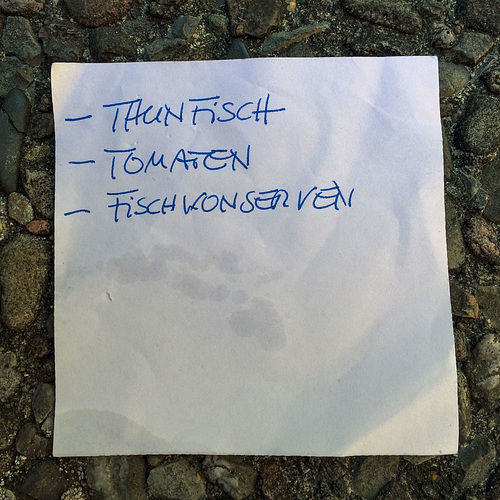 - THUNFiSCH
- TOMATEN
- FiSCHKONSERVEN